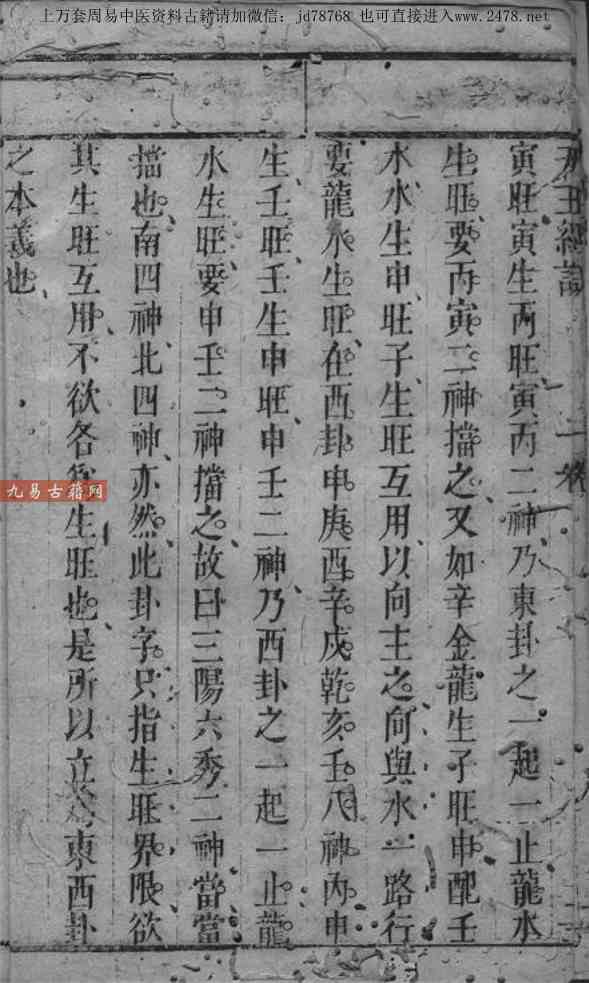 上万套周易中医资料古籍请加微信：jd78768 也可直接进入www.2478.net
天玉經註 一卷
寅旺、寅生丙旺、寅丙二神、乃東卦之一起一止、龍水
生旺、要丙寅二神擋之、又如辛金龍生子旺申、配壬
水、水生申、旺子、生旺互用、以向主之、向與水一路行、
要龍水生旺、在西卦申庚酉辛戌乾亥壬八神內、申
生壬旺、壬生申旺、申壬二神、乃西卦之一起一止、龍
水生旺、要申壬二神擋之、故曰三陽六秀二神當、當
擋也、南四神、北四神、亦然、此卦字、只指生旺界限、欲
其生旺互用、不欲各為生旺也、是所以立為東西卦
之本義也、
九易古籍网